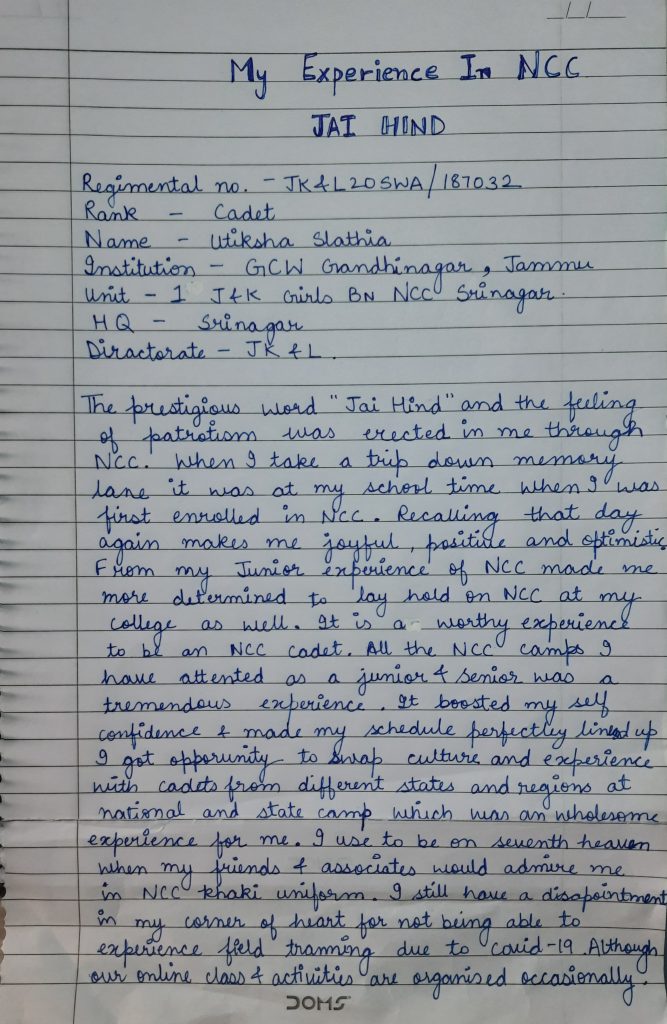 __/__/____
My Experience In NCC
JAI HIND
Regimental no. - JK&L20SWA/187032
Rank - Cadet
Name - Utiksha Slathia
Institution - GCW Gandhinagar, Jammu
Unit - 1 J&K Girls BN NCC Srinagar.
HQ - Srinagar
Diractorate - JK&L.
The prestigious word "Jai Hind" and the feeling
of patrotism was erected in me through
NCC. When I take a trip down memory
lane it was at my school time when I was
first enrolled in NCC. Recalling that day
again makes me joyful, positive and optimistic
From my Junior experience of NCC made me
more determined to lay hold on NCC at my
college as well. It is a worthy experience
to be an NCC cadet. All the NCC camps I
have attented as a junior & senior was a
tremendous experience. It boosted my self
confidence & made my schedule perfectley lined up
I got opporunity to swap culture and experience
with cadets from different states and regions at
national and state camp which was an wholesome
experience for me. I use to be on seventh heaven
when my friends & associates would admire me
in NCC khaki uniform. I still have a disapointment
in my corner of heart for not being able to
experience field tranning due to covid-19. Although
our online class & activities are organised occasionally.
DOMS